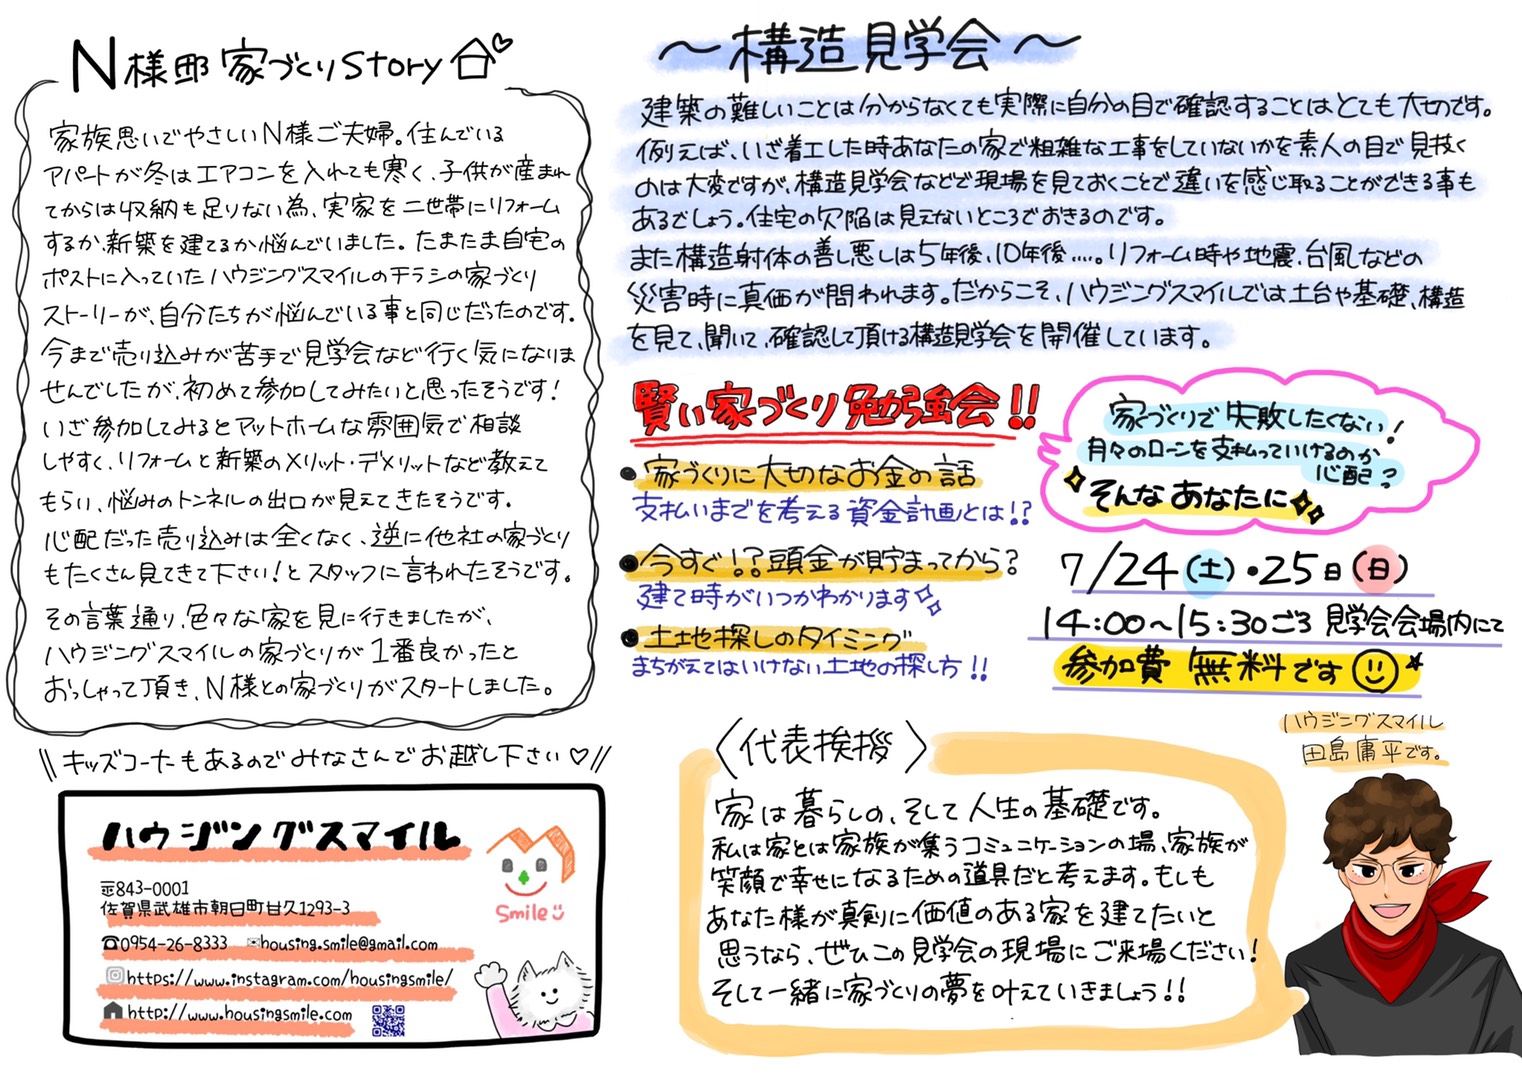 N様邸 家づくりStory
家族思いでやさしいN様ご夫婦。住んでいる
アパートが冬はエアコンを入れても寒く、子供が産まれ
てからは収納も足りない為、実家を二世帯にリフォーム
するか、新築を建てるか悩んでいました。たまたま自宅の
ポストに入っていたハウジングスマイルのチラシの家づくり
ストーリーが、自分たちが悩んでいる事と同じだったのです。
今まで売り込みが苦手で見学会など行く気になりま
せんでしたが、初めて参加してみたいと思ったそうです!
いざ参加してみるとアットホームな雰囲気で相談
しやすく、リフォームと新築のメリット・デメリットなど教えて
もらい、悩みのトンネルの出口が見えてきたそうです。
心配だった売り込みは全くなく、逆に他社の家づくり
もたくさん見てきて下さい!とスタッフに言われたそうです。
その言葉通り、色々な家を見に行きましたが、
ハウジングスマイルの家づくりが1番良かったと
おっしゃって頂き、N様との家づくりがスタートしました。
\\ キッズコーナーもあるのでみなさんでお越し下さい♡ //
ハウジングスマイル
〒843-0001
佐賀県武雄市朝日町甘久1293-3
☎0954-26-8333 ✉housing.smile@gmail.com
https://www.instagram.com/housingsmile/
http://www.housingsmile.com
Smile
~構造見学会~
建築の難しいことは分からなくても実際に自分の目で確認することはとても大切です。
例えば、いざ着工した時あなたの家で粗雑な工事をしていないかを素人の目で見抜く
のは大変ですが、構造見学会などで現場を見ておくことで違いを感じ取ることができる事も
あるでしょう。住宅の欠陥は見えないところでおきるのです。
また構造射体の善し悪しは5年後、10年後.....。リフォーム時や地震、台風などの
災害時に真価が問われます。だからこそ、ハウジングスマイルでは土台や基礎、構造
を見て、聞いて、確認して頂ける構造見学会を開催しています。
賢い家づくり勉強会!!
●家づくりに大切なお金の話
支払いまでを考える資金計画とは!?
●今すぐ!?頭金が貯まってから?
建て時がいつかわかります
●土地探しのタイミング
まちがえてはいけない土地の探し方!!
家づくりで失敗したくない!
月々のローンを支払っていけるのか
心配?
そんなあなたに
7/24(土)・25日(日)
14:00~15:30ごろ 見学会会場内にて
参加費 無料です
〈代表挨拶〉
家は暮らしの、そして人生の基礎です。
私は家とは家族が集うコミュニケーションの場、家族が
笑顔で幸せになるための道具だと考えます。もしも
あなた様が真剣に価値のある家を建てたいと
思うなら、ぜひこの見学会の現場にご来場ください!
そして一緒に家づくりの夢を叶えていきましょう!!
ハウジングスマイル
田島庸平です。